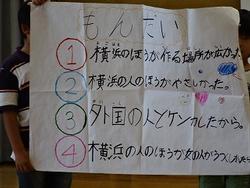 もんだい
① 横浜のほうが作る場所が広かった
② 横浜の人のほうがやさしかった。
③ 外国の人とケンカしたから。
④ 横浜の人のほうが女の人がうつくし